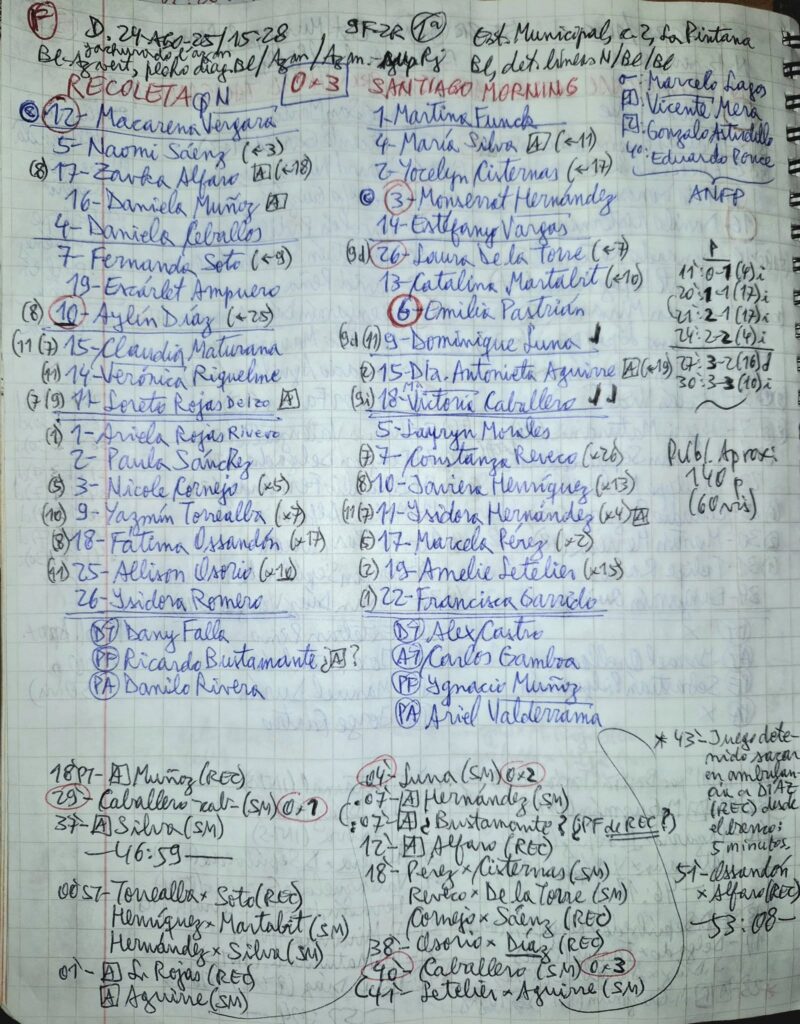 F D. 24-AGO-25/15:28 9F-2R 1ª Est. Municipal, c. 2, La Pintana
Bl, det. líneas N/Bl/Bl
RECOLETA N 0x3 SANTIAGO MORNING
Marcelo Lagos
A: Vicente Mera
2: Gonzalo Astudillo
4º: Eduardo Ponce
ANFP
C 12- Macarena Vergara
5- Naomi Sáenz (←3)
(8) 17- Zavka Alfaro A (←18)
16- Daniela Muñoz A
4- Daniela Ceballos
7- Fernanda Soto (←9)
19- Escárlet Ampuero
(8) 10- Aylín Díaz (←25)
(11 (7) 15- Claudia Maturana
(11) 14- Verónica Riquelme
(7 (9) 11- Loreto Rojas Delzo A
(1) 1- Ariela Rojas Rivero
2- Paula Sánchez
(5) 3- Nicole Cornejo (x5)
(10) 9- Yazmín Torrealba (x7)
(8) 18- Fatima Ossandón (x17)
(11) 25- Allison Osorio (x10)
26- Ysidora Romero
DT Dany Falla
PF Ricardo Bustamante ¿A?
PA Danilo Rivera
1- Martina Funck
4- María Silva A (←11)
2- Yocelyn Cisternas (←17)
C 3- Monserrat Hernández
14- Estéfany Vargas
(9d) 26- Laura De la Torre (←7)
13- Catalina Martabit (←10)
6- Emilia Pastrián
(9d (11) 9- Dominique Luna
(2) 15- Dla. Antonieta Aguirre A (←19)
(9i) 18- Mª Victoria Caballero
5- Layryn Morales
(7) 7- Constanza Reveco (x26)
(8) 10- Javiera Henríquez (x13)
(11 (7) 11- Ysidora Hernández (x4) A
(6) 17- Marcela Pérez (x2)
(2) 19- Amelie Letelier (x15)
(1) 22- Francisca Garrido
DT Alex Castro
AT Carlos Gamboa
PF Ygnacio Muñoz
PA Ariel Valderrama
P
11': 0-1 (4) i
20': 1-1 (17) i
21': 2-1 (17) i
24': 2-2 (4) i
27': 3-2 (16) d
30': 3-3 (10) i
Públ. Aprox:
140 p
(60 vis)
18'PT- A Muñoz (REC)
29'- Caballero -cab- (SM) 0x1
37'- A Silva (SM)
—46:59—
00'ST- Torrealba x Soto (REC)
Henríquez x Martabit (SM)
Hernández x Silva (SM)
01'- A L. Rojas (REC)
A Aguirre (SM)
04'- Luna (SM) 0x2
07'- A Hernández (SM)
07'- A ¿Bustamante? (¿PF de REC?)
12'- A Alfaro (REC)
18'- Pérez x Cisternas (SM)
Reveco x De la Torre (SM)
Cornejo x Sáenz (REC)
38'- Osorio x Díaz (REC)
40'- Caballero (SM) 0x3
41'- Letelier x Aguirre (SM)
* 43'- Juego dete-
nido sacar
en ambulan-
cia a DIAZ
(REC) desde
el banco:
5 minutos.
51'- Ossandón
x Alfaro (REC)
—53:08—